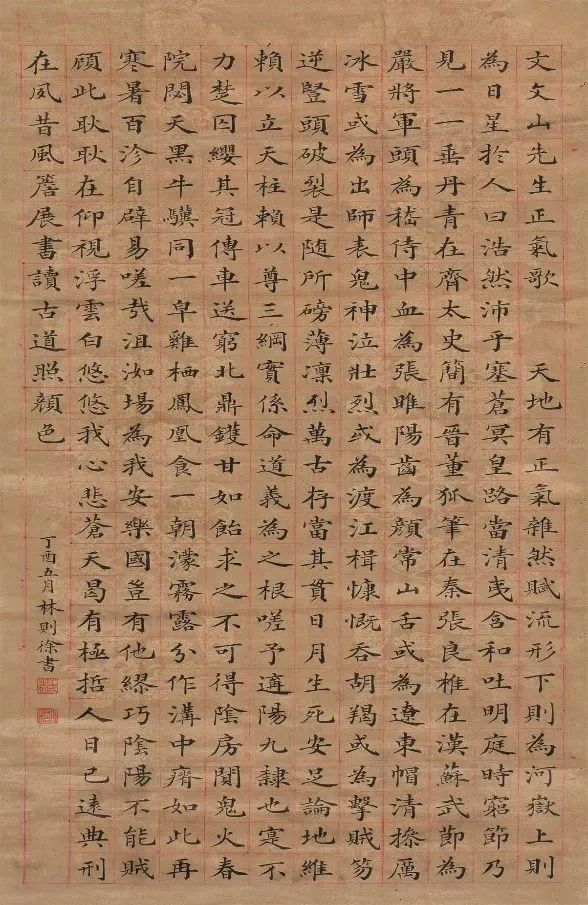 文文山先生正氣歌　天地有正氣雜然賦流形下則為河嶽上則
為日星於人曰浩然沛乎塞蒼冥皇路當清夷含和吐明庭時窮節乃
見一一垂丹青在齊太史簡有晉董狐筆在秦張良椎在漢蘇武節為
嚴將軍頭為嵇侍中血為張睢陽齒為顏常山舌或為遼東帽清操厲
冰雪或為出師表鬼神泣壯烈或為渡江楫慷慨吞胡羯或為擊賊笏
逆豎頭破裂是隨所磅薄凜烈萬古存當其貫日月生死安足論地維
賴以立天柱賴以尊三綱實係命道義為之根嗟予遘陽九隸也寔不
力楚囚纓其冠傳車送窮北鼎鑊甘如飴求之不可得陰房闃鬼火春
院閟天黑牛驥同一皁雞栖鳳凰食一朝濛霧露分作溝中瘠如此再
寒暑百沴自辟易嗟哉沮洳場為我安樂國豈有他繆巧陰陽不能賊
顧此耿耿在仰視浮雲白悠悠我心悲蒼天曷有極哲人日已遠典刑
在夙昔風簷展書讀古道照顏色
丁酉五月林則徐書